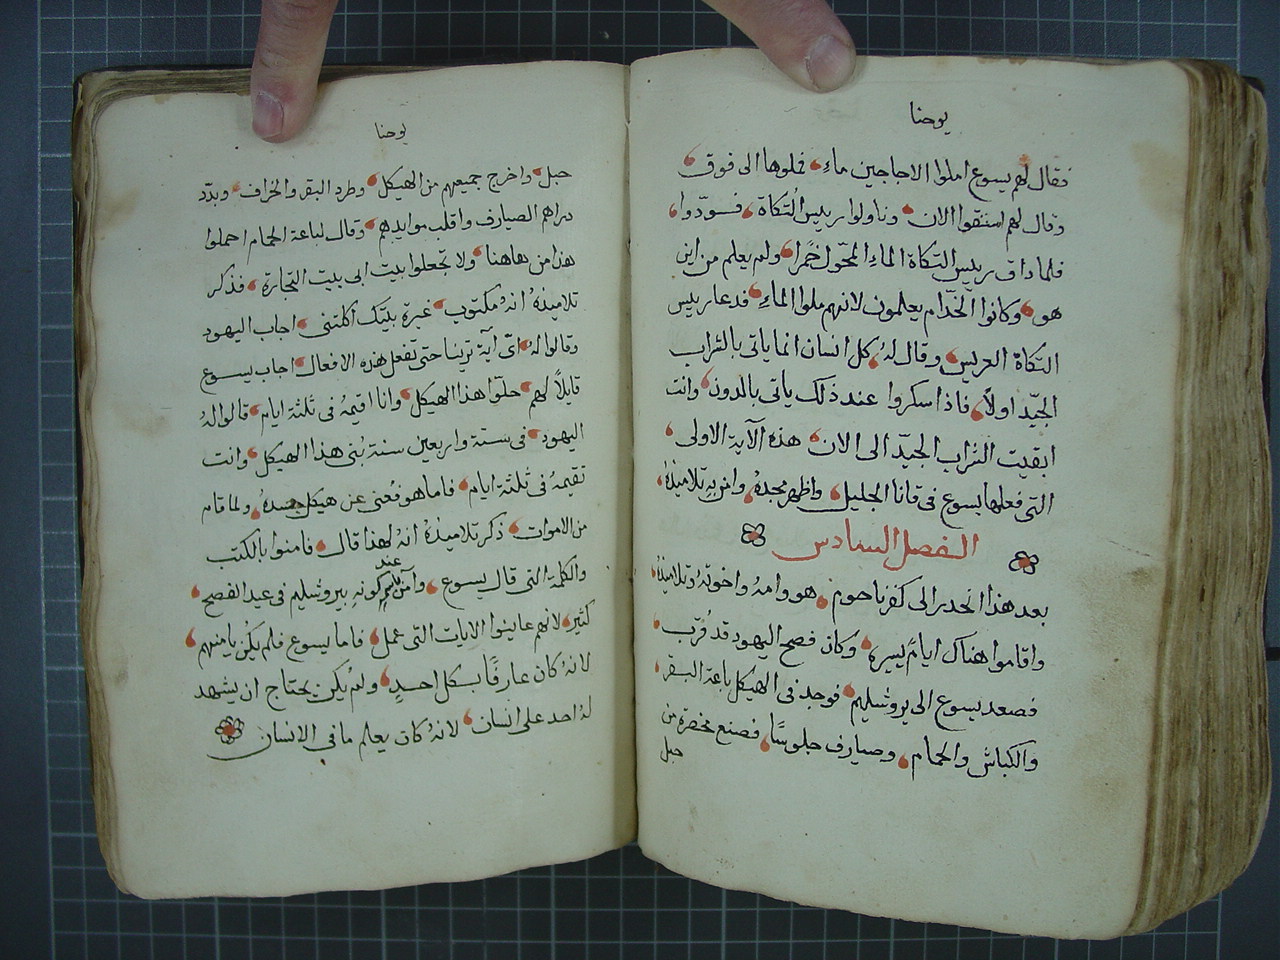 يوحنا
فقال لهم يسوع املوا الاجاجين ماءً فملوها الى فوق
وقال لهم استقوا الان وناولوا رييس التكاة فسوّدوا
فلما ذاق رييس التكاة الماء المحّول خمرًا ولم يعلم من اين
هو وكانوا الخدّام يعلمون لانهم ملوا الماء فدعا رييس
التكاة العريس وقال لهُ كل انسان انما ياتي بالشراب
الجيّد اولاً فاذا سكروا عند ذلك ياتي بالدون وانت
ابقيت الشراب الجيّد الى الان هذه الآية الاولى
التي فعلها يسوع في قانا الجليل واظهر مجدهُ وامن به تلاميذهُ
الفصل السادس
بعد هذا انحدر الى كفرناحوم هو وامهُ واخوته وتلاميذهُ
واقاموا هناك ايامًا يسيرة وكان فصح اليهود قد قُرّب
فصعد يسوع الى يروشليم فوجد في الهيكل باعة البقر
والكباش والحمام وصيارف جلوسًا فصنع مخصرة من
حبل
يوحنا
حبل واخرج جميعهم من الهيكل وطرد البقر والخراف وبدّد
دراهم الصيارف واقلب موايدهم وقال لباعة الحمام احملوا
هذا من هاهنا ولا تجعلوا بيت ابي بيت التجارة فذكر
تلاميذهُ انهُ مكتوب غيرة بيتك اكلتني اجاب اليهود
وقالوا لهُ ايّ آية ترينا حتى تفعل هذه الافعال اجاب يسوع
قايلاً لهم حلّوا هذا الهيكل وانا اقيمهُ في ثلثة ايام قالوا لهُ
اليهود في ستة واربعين سنة بُني هذا الهيكل وانت
تقيمهُ في ثلثة ايام فاما هو فعُني عن هيكل جسدهُ ولما قام
من الاموات ذكر تلاميذهُ انهُ لهذا قال فامنوا بالكتب
والكلمة التي قال يسوع وآمن عند كونهِ بيروشليم في عيد الفصح
كثير لانهم عاينوا الايات التي عمل فاما يسوع فلم يكُن يامنهم
لانهُ كان عارفًا بكل احدٍ ولم يكُن يحتاج ان يشهد
لهُ احد على انسان لانهُ كان يعلم ما في الانسان